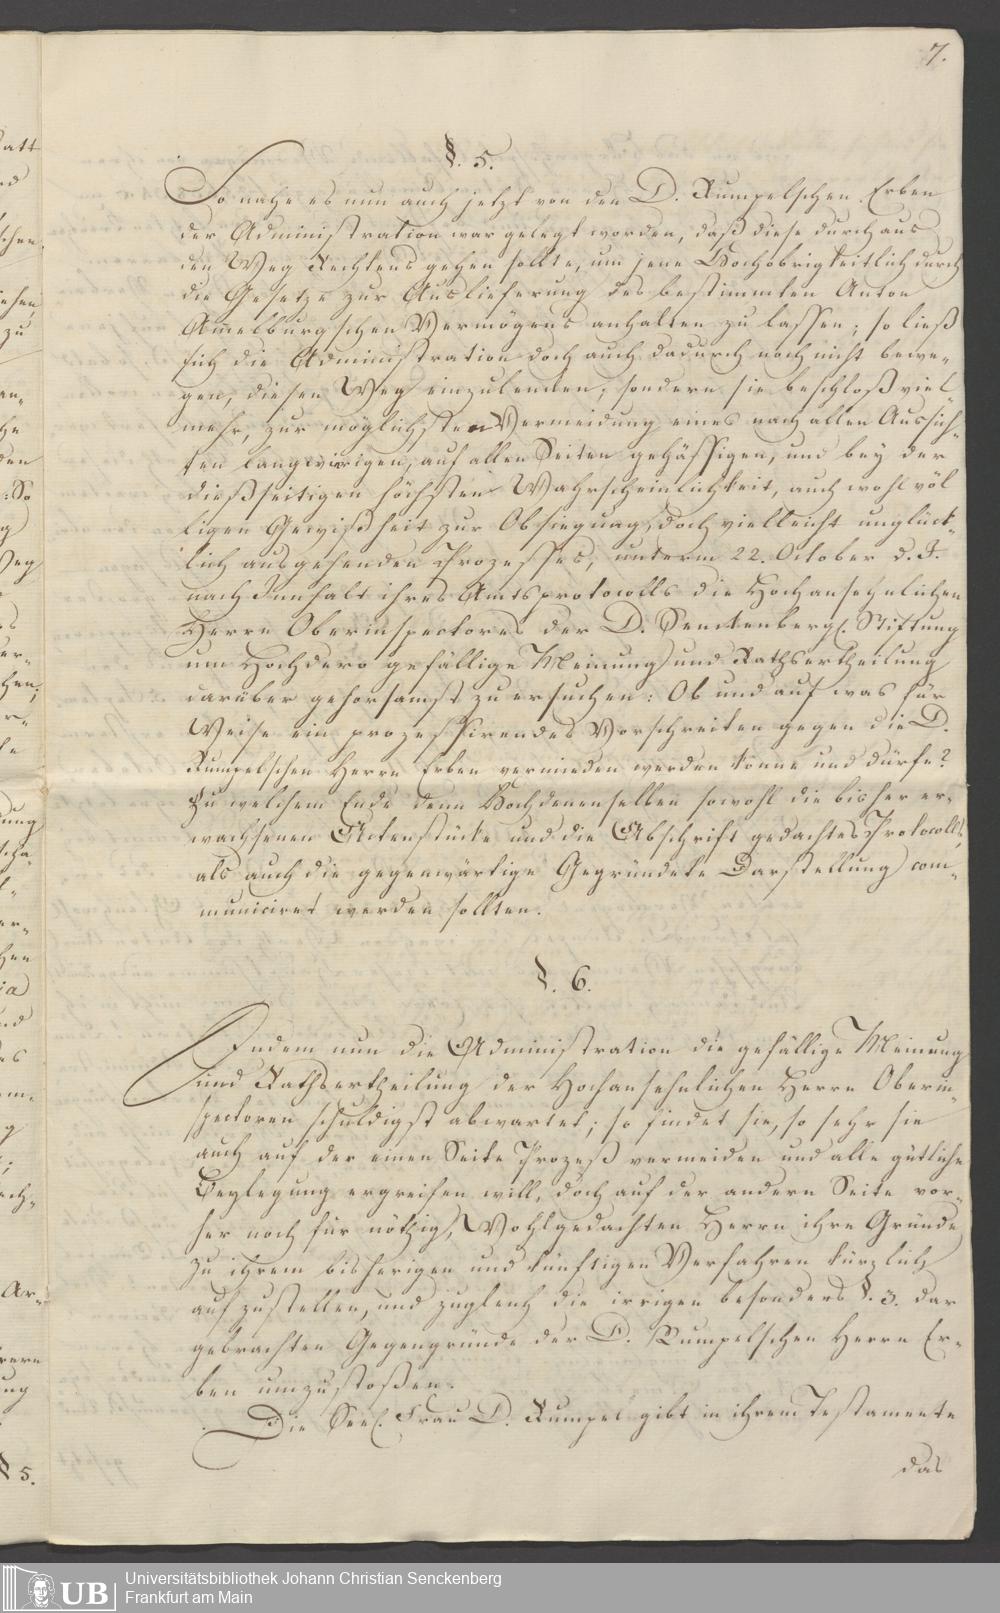 7.
§. 5.
So nahe es nun auch jetzt von den D. Rumpelschen Erben
der Administration war gelegt worden, daß diese durchaus
den Weg Rechtens gehen sollte, um jene Hochobrigkeitlich durch
die Gesetze zur Auslieferung des bestimmten Anton
Amelburgschen Vermögens anhalten zu lassen; so ließ
sich die Administration doch auch dadurch noch nicht bewe-
gen, diesen Weg einzulenken, sondern sie beschloß viel
mehr, zur möglichsten Vermeidung eines nach allen Aussich-
ten langwierigen, auf allen Seiten gehässigen, und bey der
dießseitigen höchsten Wahrscheinlichkeit, auch wohl völ
ligen Gewißheit zur Obsiegung, doch vielleicht unglück-
lich ausgehenden Prozesses, unterm 22. October d. J.
nach Innhalt ihres Amtsprotocolls die Hochansehnlichen
Herrn Oberinspectores der D. Senckenbergl. Stiftung
um Hochdero gefällige Meinung und Rathsertheilung
darüber gehorsamst zu ersuchen: Ob und auf was für
Weise ein prozessirendes Vorschreiten gegen die D.
Rumpelschen Herrn Erben vermieden werden könne und dürfe?
Zu welchem Ende denn Hochdenenselben sowohl die bisher er-
wachsenen Actenstücke und die Abschrift gedachtes Protocolls,
als auch die gegenwärtige Gegründete Darstellung com-
municiret werden sollten.
§. 6.
Indem nun die Administration die gefällige Meinung
und Rathsertheilung der Hochansehnlichen Herrn Oberin-
spectoren schuldigst abwartet; so findet sie, so sehr sie
auch auf der einen Seite Prozeß vermeiden und alle gütliche
Beylegung ergreifen will, doch auf der andern Seite vor-
her noch für nöthig, Wohlgedachten Herrn ihre Gründe
zu ihrem bisherigen und künftigen Verfahren kürzlich
aufzustellen, und zugleich die irrigen besonders §. 3. dar
gebrachten Gegengründe der D. Rumpelschen Herrn Er-
ben umzustoßen.
Die Seel. Frau D. Rumpel gibt in ihrem Testamente
das
§ 5.
UB Universitätsbibliothek Johann Christian Senckenberg
Frankfurt am Main